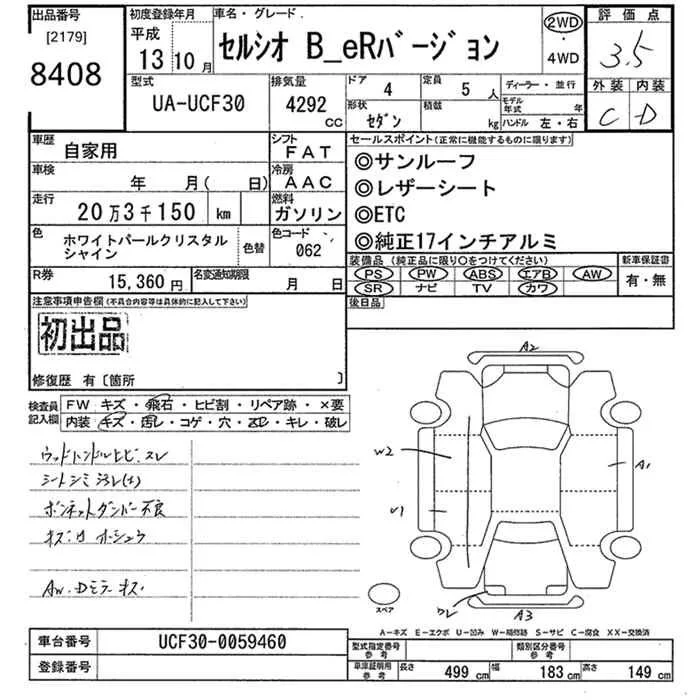 出品番号
[2179]
8408
初度登録年月
平成
13 10 月
車名・グレード
セルシオ B_eRバージョン
2WD
・
4WD
評価点
3.5
外装 内装
C -D
型式
UA-UCF30
排気量
4292 CC
ドア 4
定員 5 人
形状
セダン
積載
kg
ディーラー・並行
モデル年式 年
ハンドル 左・右
車歴 自家用
シフト
FAT
車検 年 月( 日)
冷房
AAC
走行 20万3千150 km
燃料
ガソリン
色
ホワイトパールクリスタル
シャイン
色替
色コード
062
R券 15,360 円
名変通知期限 月 日
セールスポイント(正常に機能するものに限ります)
◎サンルーフ
◎レザーシート
◎ETC
◎純正17インチアルミ
装備品 (純正品に限り○をつけてください)
PS PW ABS エアB AW
SR ナビ TV カワ
新車保証書
有・無
後日品
注意事項申告欄(不具合内容等は具体的に記入して下さい)
初出品
修復歴 有〔箇所 〕
検査員
記入欄
FW キズ・飛石・ヒビ割・リペア跡・×要
内装・キズ・汚レ・コゲ・穴・ 凹・キレ・破レ
ウッドハンドルヒビ・スレ
シートシミ
ボンネットダンパー不良
キズ凹 ホシュウ
AW・Dミラーキズ
A2
W2
A1
U1
ワレ
A3
スペア
A－キズ E－エクボ U－凹み W－補修跡 S－サビ C－腐食 XX－交換済
車台番号 UCF30-0059460
登録番号
型式指定番号
参考
類別区分番号
参考
車庫証明用
参考
長さ 499 cm
幅 183 cm
高さ 149 cm